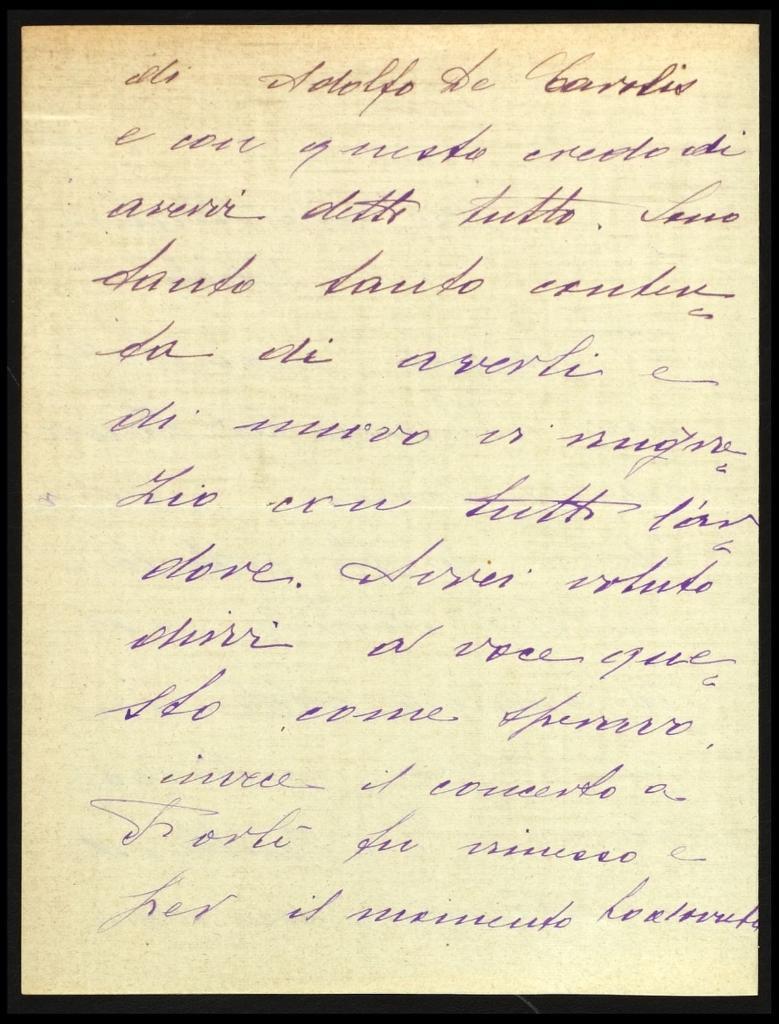 di Adolfo De Carolis
e con questo credo di
avervi detto tutto. Sono
tanto tanto conten=
ta di averli e
di nuovo vi ringra=
zio con tutto l'ar=
dore. Avrei voluto
dirvi a voce que=
sto come speravo,
invece il concerto a
Forlì fu rimesso e
per il momento ho dovuto